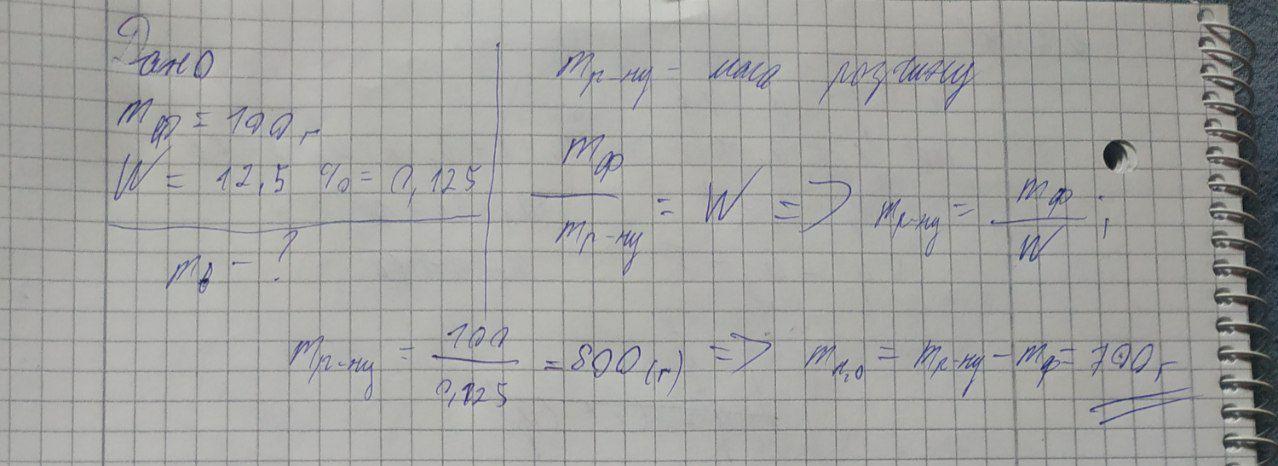 Дано
m_ф = 100 г
W = 12,5 % = 0,125
m_в - ?
m_р-ну - маса розчину
m_ф / m_р-ну = W => m_р-ну = m_ф / W ;
m_р-ну = 100 / 0,125 = 800 (г) => m_H₂O = m_р-ну - m_ф = 700 г